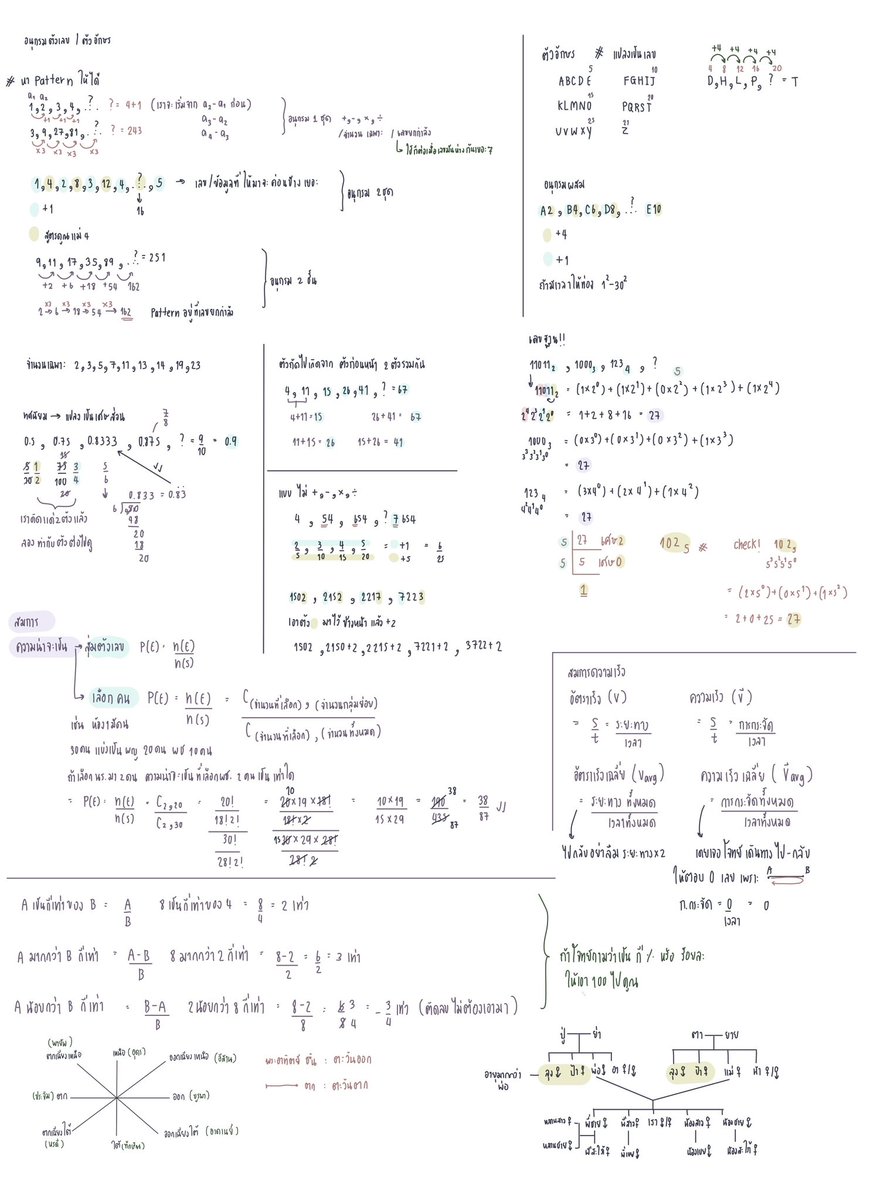 อนุกรมตัวเลข / ตัวอักษร
# หา Pattern ให้ได้
a₁ a₂
1, 2, 3, 4, ..?.. ? = 4+1 (เราจะเริ่มจาก a₂-a₁ ก่อน)
+1 +1 +1
a₃-a₂
a₄-a₃
3, 9, 27, 81, ..?.. ? = 243
×3 ×3 ×3 ×3
อนุกรม 1 ชุด +, -, ×, ÷
/จำนวนเฉพาะ / เลขยกกำลัง
1, 4, 2, 8, 3, 12, 4, ..?.., 5 → เลข/ข้อมูลที่ให้มาจะค่อนข้างเยอะ
16
อนุกรม 2 ชุด
+1
สูตรคูณแม่ 4
9, 11, 17, 35, 89, ..?.. = 251
+2 +6 +18 +54 162
×3 ×3 ×3 ×3
2 → 6 → 18 → 54 → 162 Pattern อยู่ที่เลขยกกำลัง
อนุกรม 2 ชั้น
ตัวอักษร # แปลงเป็นเลข
5 10
ABCDE FGHIJ
15 20
KLMNO PQRST
25 26
UVWXY Z
+4 +4 +4 +4
4 8 12 16 20
D, H, L, P, ? = T
อนุกรมผสม
A2, B4, C6, D8, ..?.. E10
+4
+1
ถ้ามีเวลาให้ท่อง 1²-30²
จำนวนเฉพาะ: 2, 3, 5, 7, 11, 13, 14, 19, 23
ทศนิยม → แปลงเป็นเศษส่วน 7/8
0.5, 0.75, 0.8333, 0.875, ? = 9/10 = 0.9
5/10 1/2 75/100 3/4 5/6
0.833 = 0.83
เราคิดแค่ 2 ตัวแล้ว
ลองทำกับตัวต่อไปดู
ตัวถัดไปเกิดจาก ตัวก่อนหน้า 2 ตัวรวมกัน
4, 11, 15, 26, 41, ? = 67
4+11 = 15 26+41 = 67
11+15 = 26 15+26 = 41
แบบไม่ +, -, ×, ÷
4, 54, 654, ? 7654
2/5, 3/10, 4/15, 5/20 = +1/+5 = 6/25
1502, 2152, 2217, 7223
เอาตัว มาไว้ข้างหน้า แล้ว +2
1502, 2150+2, 2215+2, 7221+2, 3722+2
เลขฐาน!!
11011₂, 1000₃, 123₄, ? 5
11011₂ = (1×2⁰)+(1×2¹)+(0×2²)+(1×2³)+(1×2⁴)
2⁴2³2²2¹2⁰ = 1+2+8+16 = 27
1000₃ = (0×3⁰)+(0×3¹)+(0×3²)+(1×3³)
3³3²3¹3⁰ = 27
123₄ = (3×4⁰)+(2×4¹)+(1×4²)
4²4¹4⁰ = 27
5 27 เศษ 2 102₅ # check! 102₅
5 5 เศษ 0
1
= (2×5⁰)+(0×5¹)+(1×5²)
= 2+0+25 = 27
สมการ
ความน่าจะเป็น → สุ่มตัวเลข P(E) = n(E)/n(S)
→ เลือกคน P(E) = n(E)/n(S) = C(จำนวนที่เลือก), (จำนวนกลุ่มย่อย) / C(จำนวนที่เลือก), (จำนวนทั้งหมด)
เช่น ห้อง 1 มีคน
30 คน แบ่งเป็น พญ 20 คน พช 10 คน
ถ้าเลือก นร. มา 2 คน ความน่าจะเป็นที่เลือก พญ. 2 คน เป็นเท่าใด
= P(E) = n(E)/n(S) = C₂,₂₀/C₂,₃₀ = 20!/18!2! / 30!/28!2! = 20×19×18!/18!×2 / 30×29×28!/28!2 = 10×19/15×29 = 190/435 = 38/87
สมการความเร็ว
อัตราเร็ว (v) ความเร็ว (v⃗)
= s/t = ระยะทาง/เวลา = s/t = การกระจัด/เวลา
อัตราเร็วเฉลี่ย (Vavg) ความเร็วเฉลี่ย (V⃗avg)
= ระยะทางทั้งหมด/เวลาทั้งหมด = การกระจัดทั้งหมด/เวลาทั้งหมด
ไปกลับอย่าลืม ระยะทาง×2 เคยเจอโจทย์ เดินทาง ไป-กลับ
ให้ตอบ 0 เลย เพราะ A B
ก.กระจัด = 0/เวลา = 0
A เป็นกี่เท่าของ B = A/B 8 เป็นกี่เท่าของ 4 = 8/4 = 2 เท่า
A มากกว่า B กี่เท่า = A-B/B 8 มากกว่า 2 กี่เท่า = 8-2/2 = 6/2 = 3 เท่า
A น้อยกว่า B กี่เท่า = B-A/B 2 น้อยกว่า 8 กี่เท่า = 8-2/8 = 6/8 3/4 = -3/4 เท่า (ติดลบไม่ต้องเอามา)
ถ้าโจทย์ถามว่าเป็นกี่ % หรือ ร้อยละ
ให้เอา 100 ไปคูณ
(พายัพ)
ตกเฉียงเหนือ เหนือ (อุดร) ออกเฉียงเหนือ (อีสาน)
(ประจิม) ตก ออก (บูรพา)
ตกเฉียงใต้ (หรดี) ใต้ (ทักษิณ) ออกเฉียงใต้ (อาคเนย์)
พระอาทิตย์ ขึ้น : ตะวันออก
ตก : ตะวันตก
ปู่ ย่า ตา ยาย
อายุมากกว่าพ่อ ลุง ป้า พ่อ อา ลุง ป้า แม่ น้า
หลานสาว พี่ชาย พี่สาว เรา น้องสาว น้องชาย
หลานชาย พี่สะใภ้ พี่เขย น้องเขย น้องสะใภ้